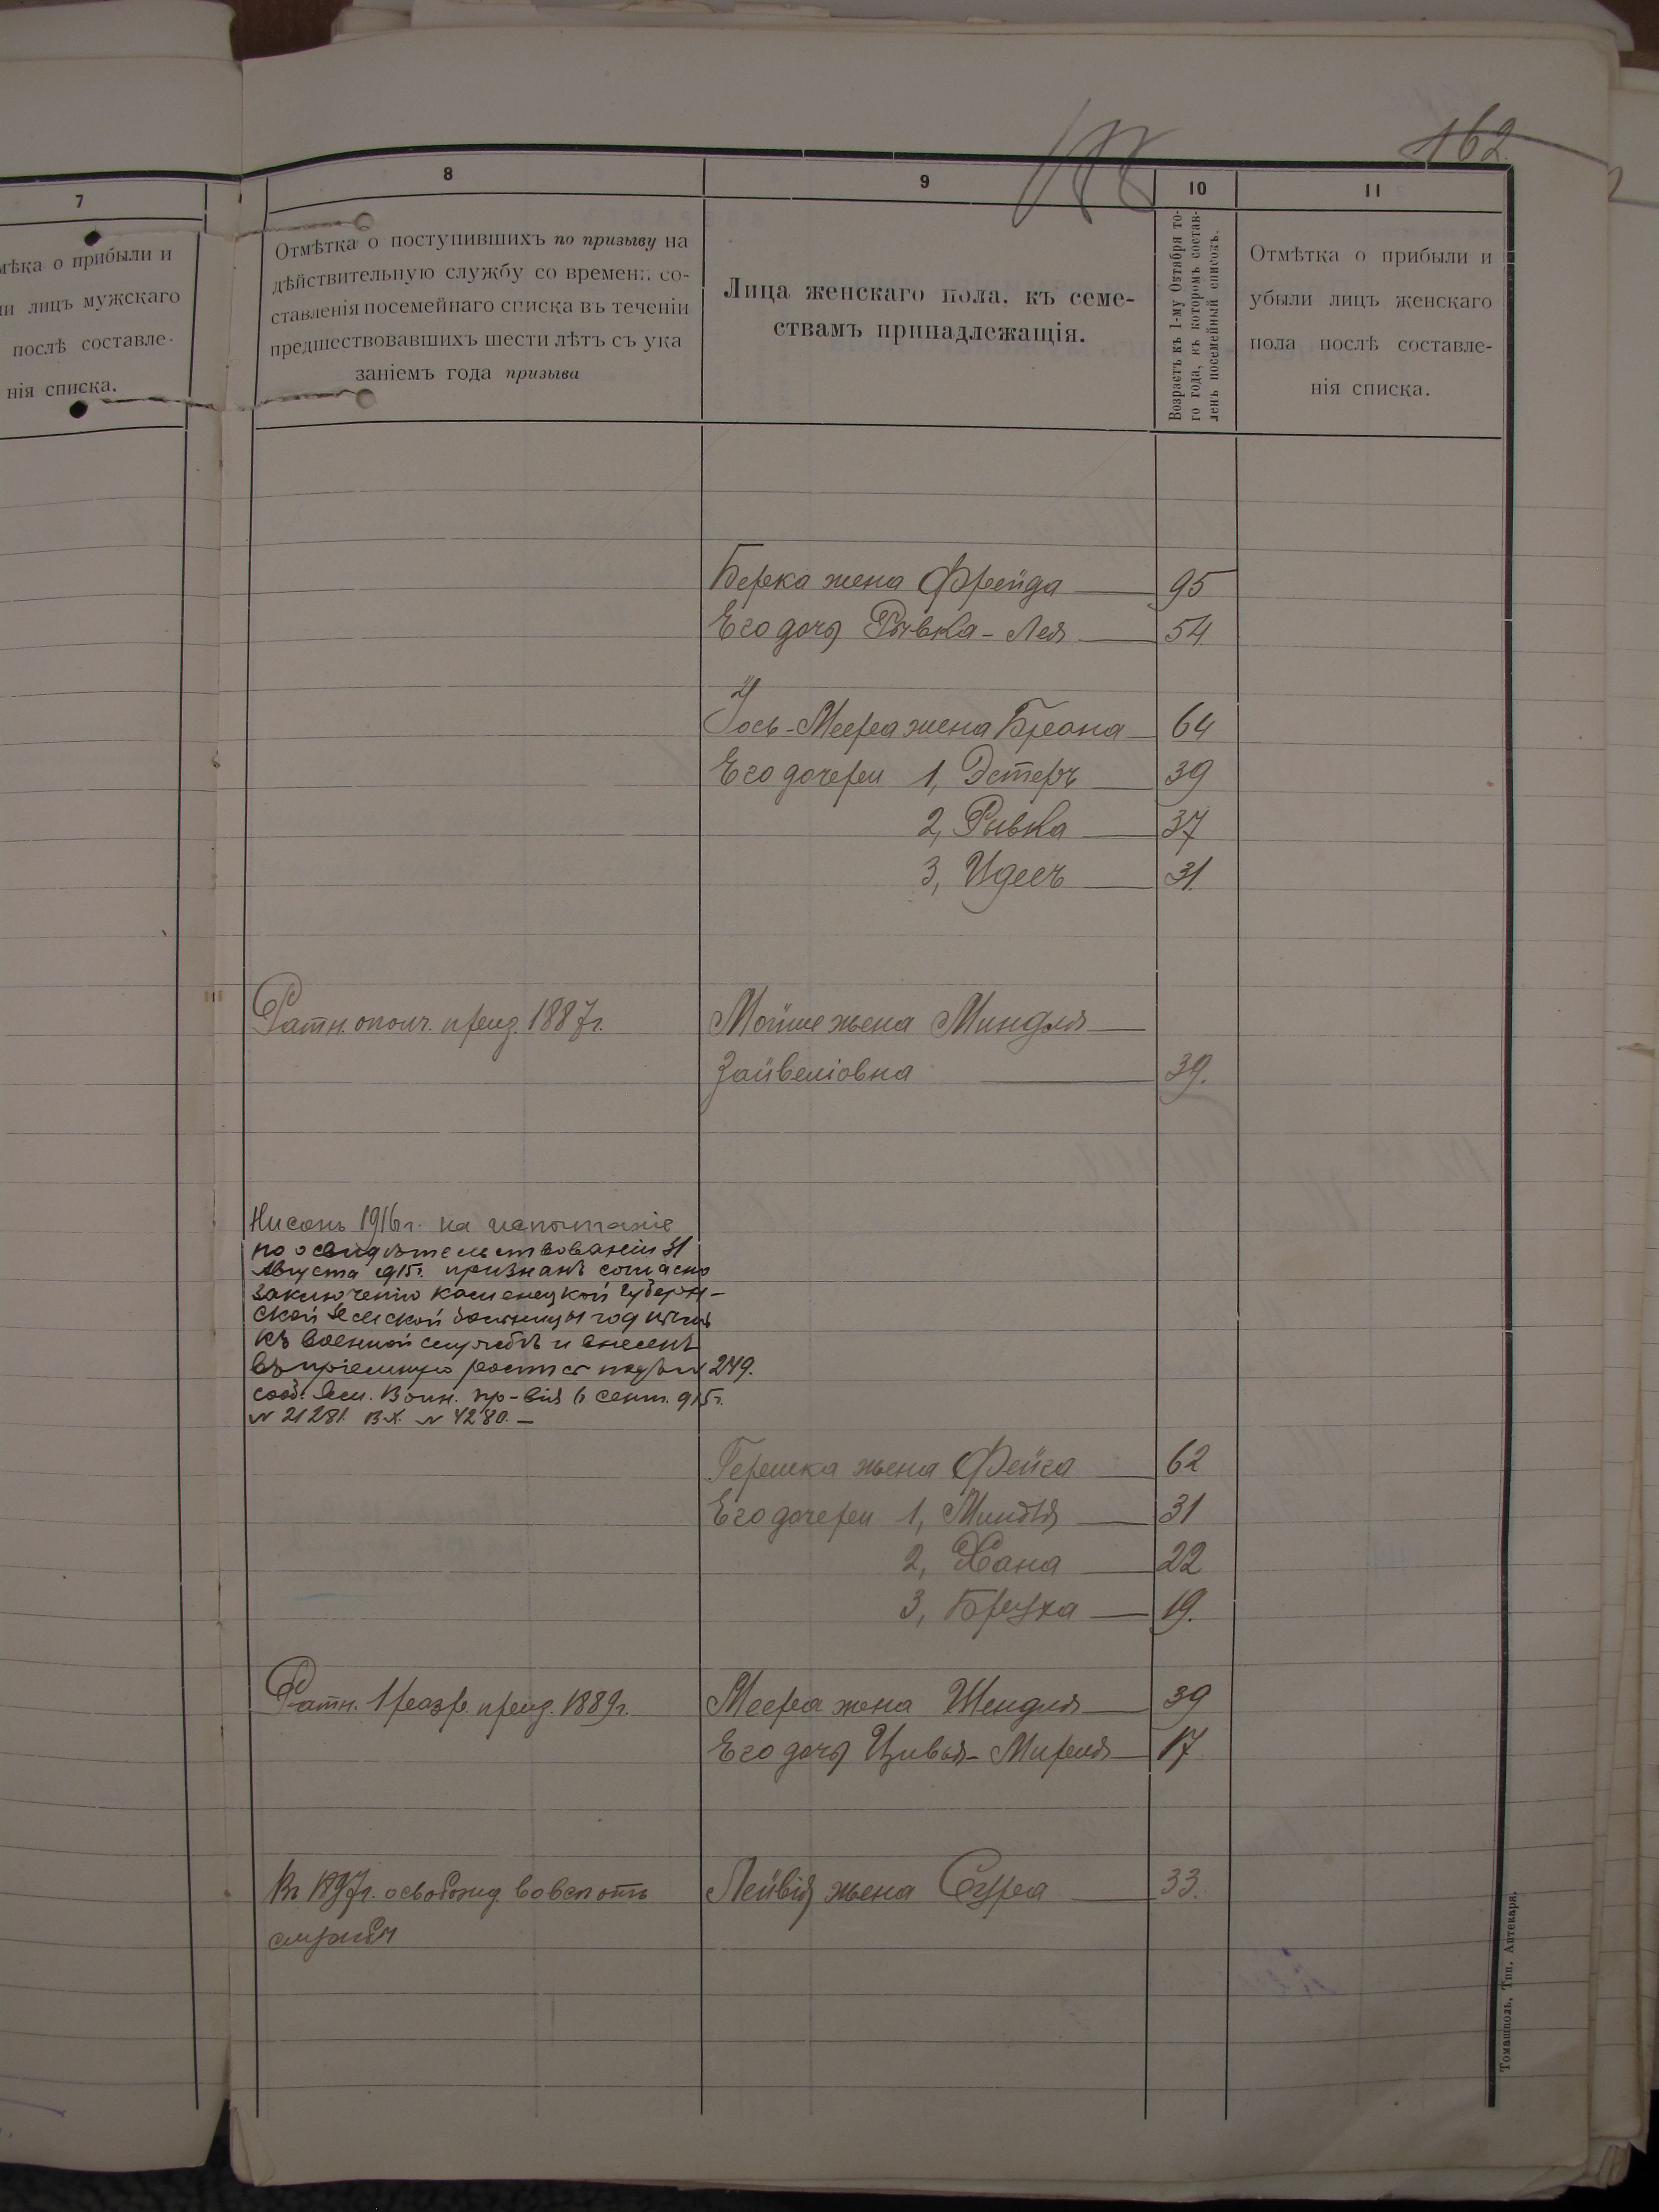 162
7
мѣка о прибыли и
ли лицъ мужскаго
послѣ составле-
нія списка.
8
Отмѣтка о поступившихъ по призыву на
дѣйствительную службу со времени со-
ставленія посемейнаго списка въ теченіи
предшествовавшихъ шести лѣтъ съ ука
заніемъ года призыва
9
Лица женскаго пола, къ семе-
ствамъ принадлежащія.
10
Возрастъ къ 1-му Октября то-
го года, въ которомъ состав-
ленъ посемейный списокъ.
11
Отмѣтка о прибыли и
убыли лицъ женскаго
пола послѣ составле-
нія списка.
Берка жена Фрейда 95
Его дочь Рывка-Лея 54
Іось-Меера жена Бреана 64
Его дочери 1, Эстеръ 39
2, Рывка 37
3, Идесъ 31.
Ратн. ополч. приз. 1887г.
Мойше жена Миндля
Зайвеліовна 39.
Нисонъ 1916г. на испытаніе
по освидѣтельствованіи 31
Августа 915г. признанъ согласно
заключенію каменецкой губерн-
ской Земской больницы годнымъ
къ военной службѣ и внесенъ
въ пріемную роспись подъ № 249.
сооб. Ям. Воин. пр-вія 6 сент. 915г.
№ 21281. Вх. № 4280. —
Гершка жена Фейга 62
Его дочери 1, Миндля 31
2, Хана 22
3, Бруха 19.
Ратн. 1 разр. приз. 1889г.
Меера жена Шендля 39
Его дочь Цивья-Миреля 17
Въ 1897г. освобожд. вовсе отъ
службы
Лейвія жена Сура 33.
Томашполь, Тип. Аптекаря.